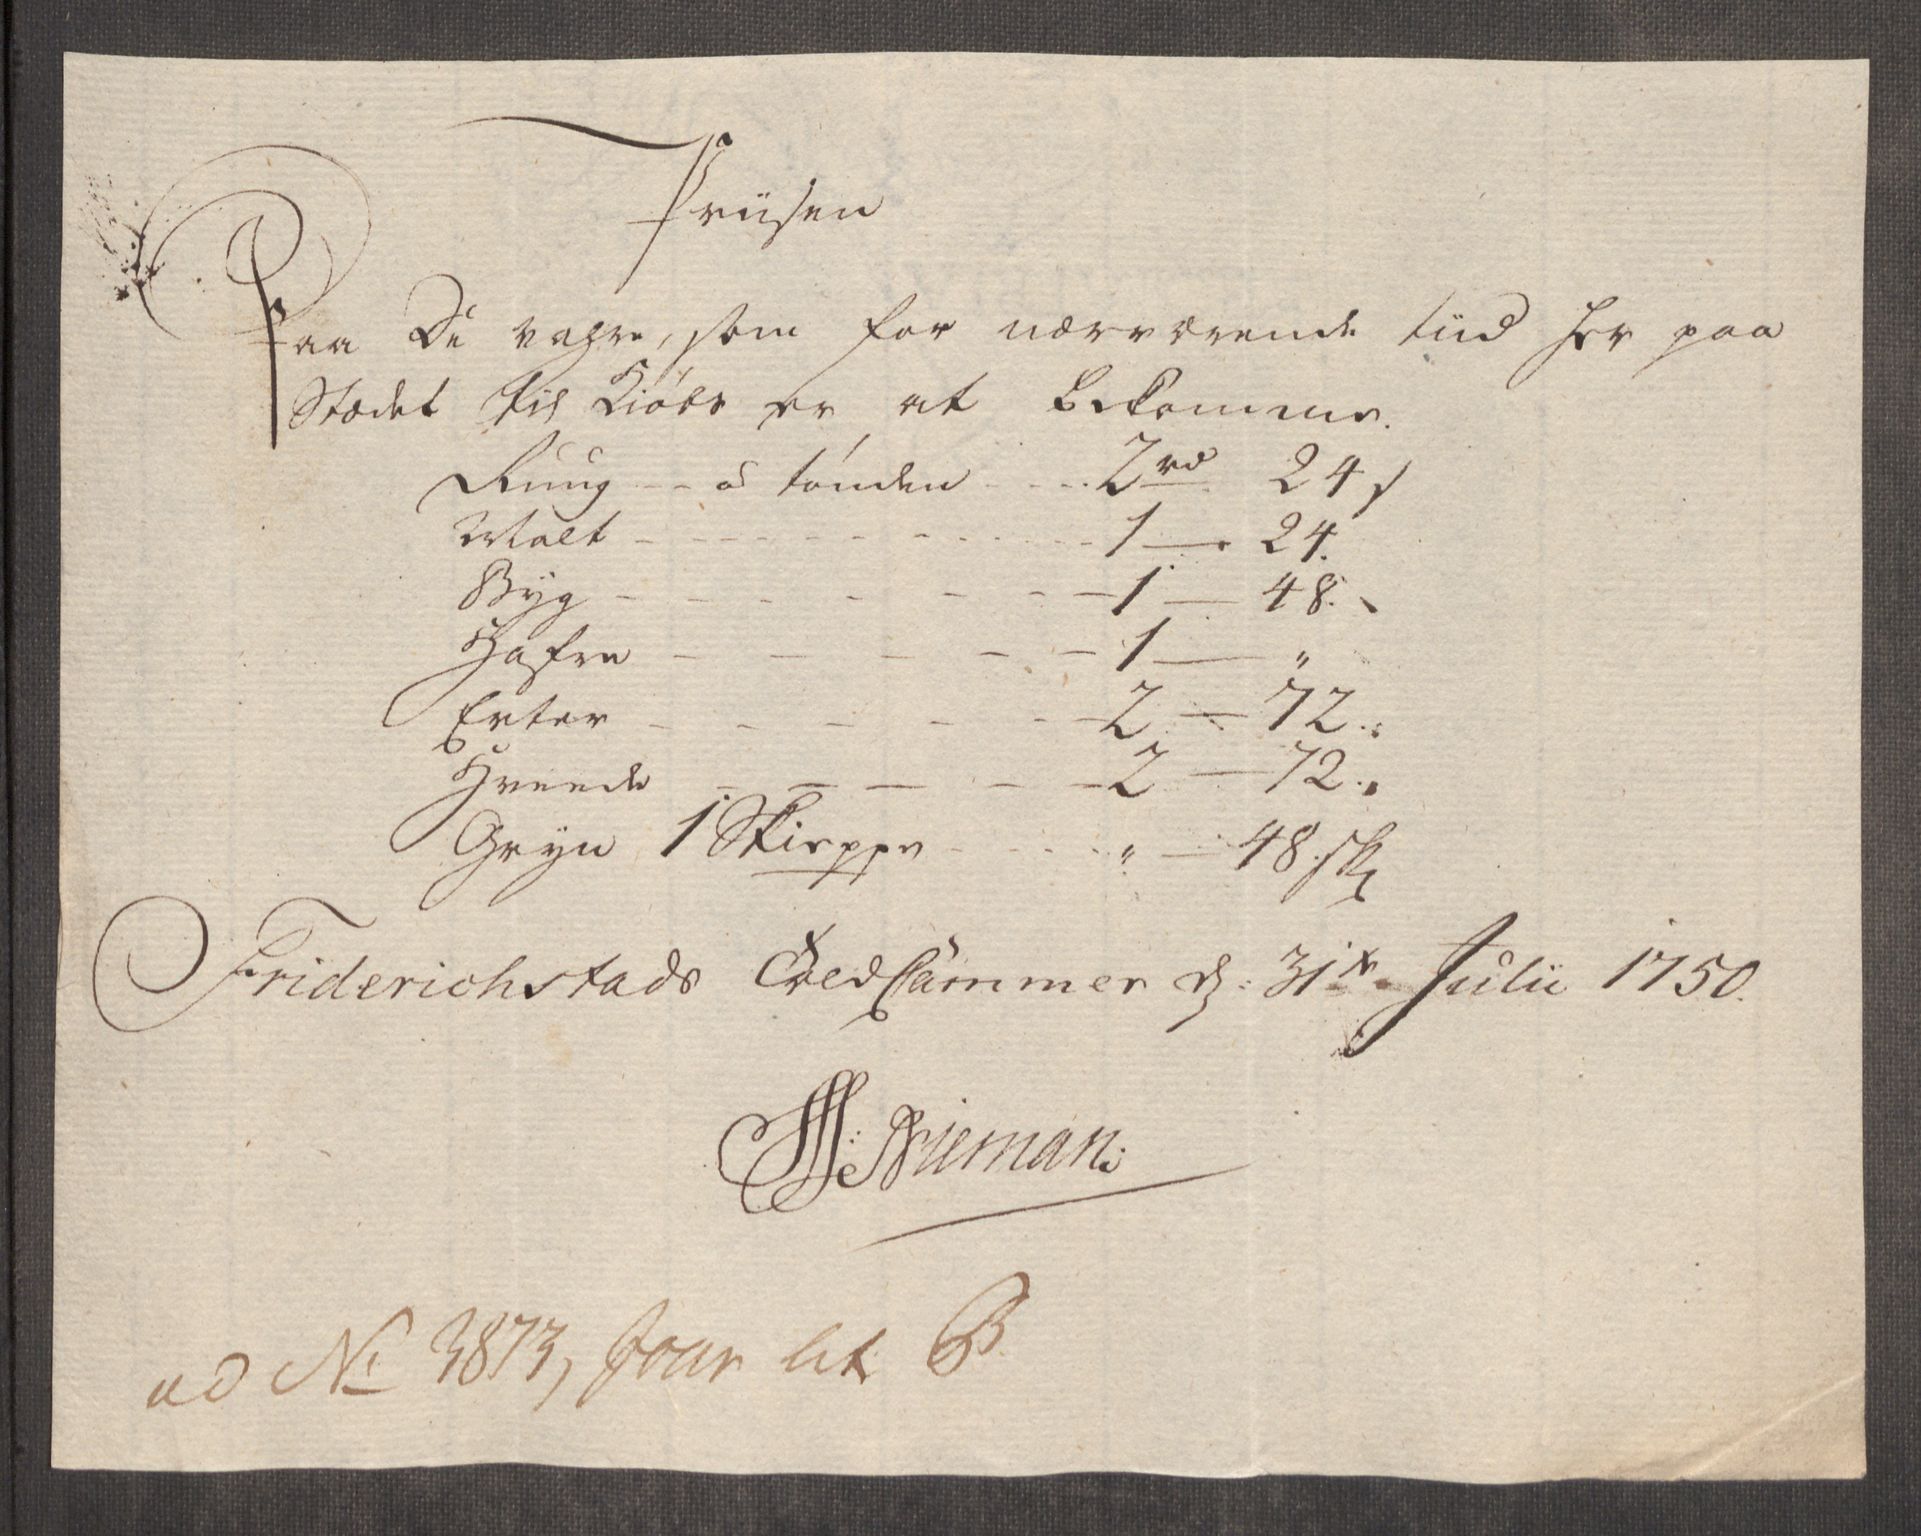 Priisen
Paa De vahre, som for nærværende tiid her paa
Stædet til Kiøbs er at bekomme.
Ruug - - a tønden - - - 2 rd 24 s
Malt - - - - - - 1 — 24.
Byg - - - - - - 1 — 48.
Hafre - - - - - 1 — "
Erter - - - - - 2 — 72.
Hveede - - - - - 2 — 72.
Gryn 1 Skieppe - - - " — 48. sk
Friderichstads Told Cammer d: 31te Julii 1750.
Nieman:
ad No 3873, Jour lit B